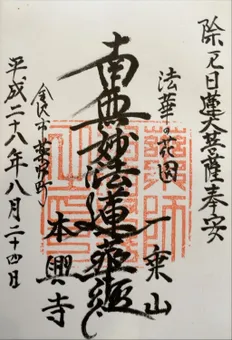 除厄日蓮大菩薩奉安
法華の花園
南無妙法蓮華経
一乗山
本興寺
金沢市薬師町
平成二十八年八月二十四日
薬師